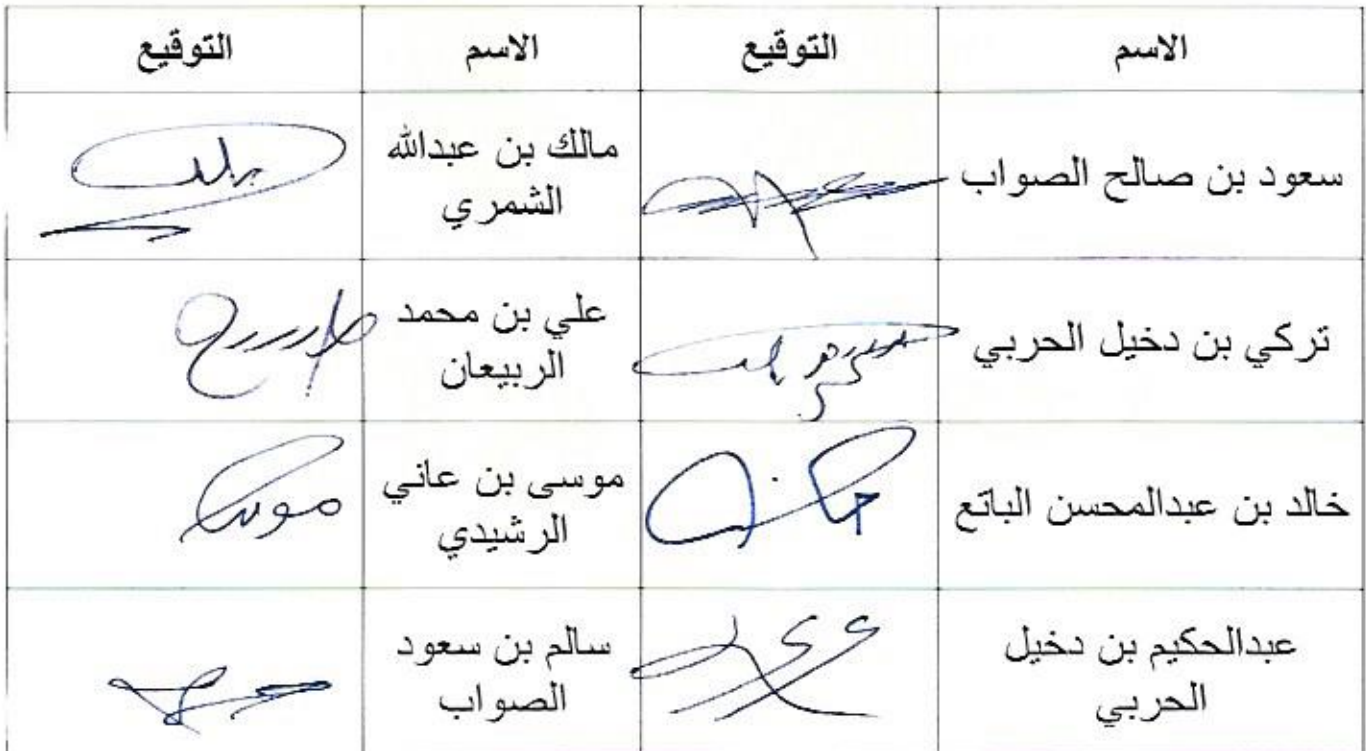 الاسم التوقيع الاسم التوقيع
سعود بن صالح الصواب
مالك بن عبدالله
الشمري
تركي بن دخيل الحربي
علي بن محمد
الربيعان
خالد بن عبدالمحسن الباتع
موسى بن عاني
الرشيدي
عبدالحكيم بن دخيل
الحربي
سالم بن سعود
الصواب